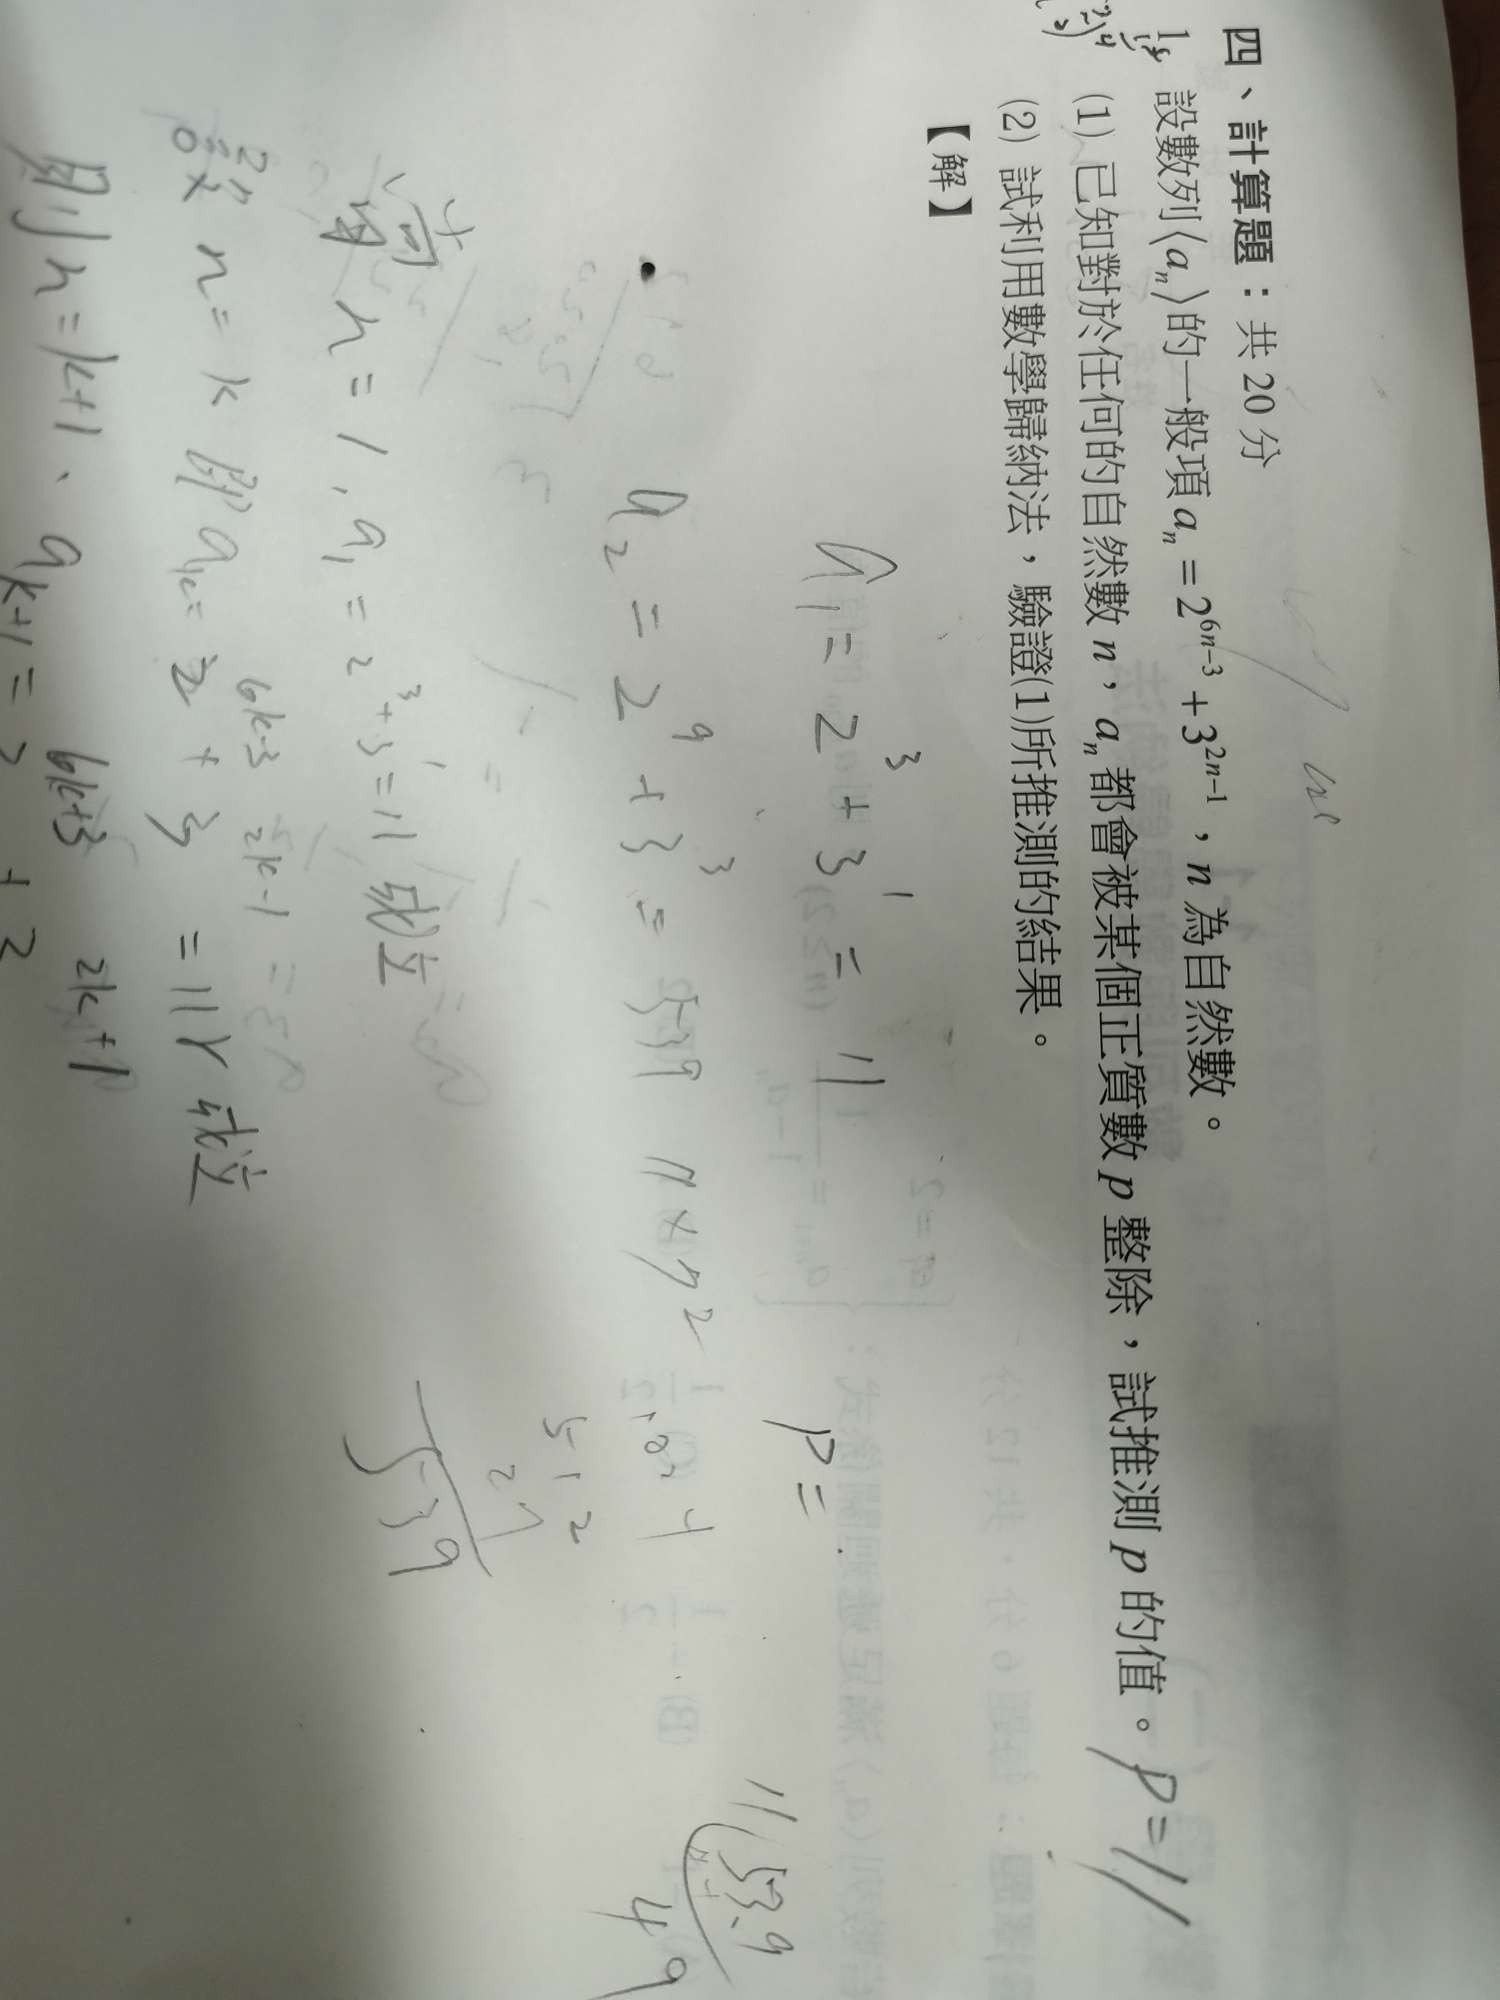 四、計算題：共 20 分
設數列⟨aₙ⟩的一般項 aₙ = 2⁶ⁿ⁻³ + 3²ⁿ⁻¹，n 為自然數。
(1) 已知對於任何的自然數 n，aₙ 都會被某個正質數 p 整除，試推測 p 的值。 P = 11
(2) 試利用數學歸納法，驗證(1)所推測的結果。
【解】
a₁ = 2³ + 3¹ = 11 P =
11 539 49
a₂ = 2⁹ + 3³ = 539 11 × 7²
512
27
539
當 n = 1，a₁ = 2³ + 3¹ = 11 成立
設 n = k 即 aₖ = 2⁶ᵏ⁻³ + 3²ᵏ⁻¹ = 11r 成立
則 n = k+1、aₖ₊₁ = 2⁶ᵏ⁺³ + 3²ᵏ⁺¹